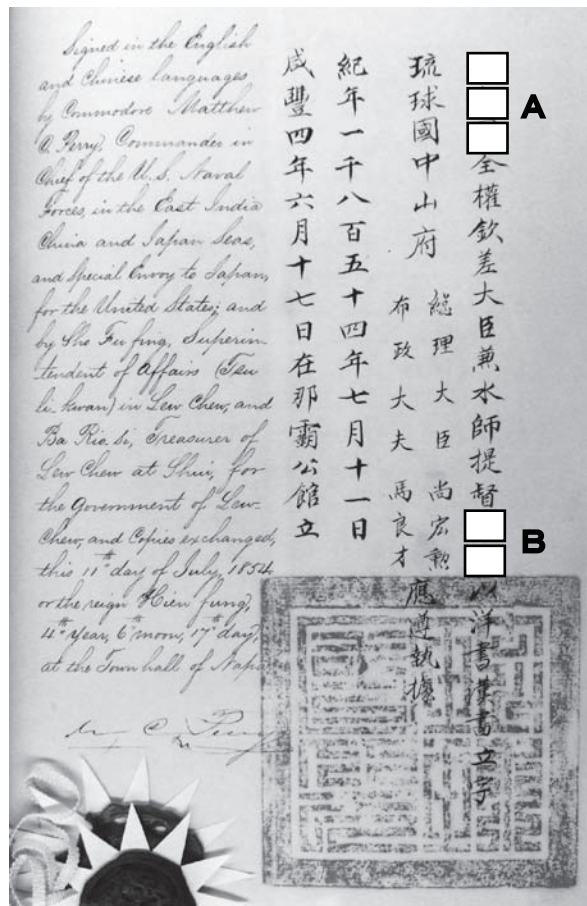 Signed in the English
and Chinese languages
by Commodore Matthew
C. Perry, Commander in
Chief of the U.S. Naval
Forces, in the East India
China and Japan Seas,
and Special Envoy to Japan,
for the United States; and
by Sho Fu fing, Superin-
tendent of Affairs (Tsu
li-kwan) in Lew Chew, and
Ba Rio-si, Treasurer of
Lew Chew at Shui, for
the Government of Lew-
Chew, and Copies exchanged,
this 11th day of July, 1854
or the reign Hien fung,
4th Year, 6th moon, 17th day,
at the Town hall of Napa
M C Perry
A
全權欽差大臣兼水師提督
B
以洋書漢書立字
琉球國中山府
總理大臣尚宏勳
布政大夫馬良才
應遵執據
紀年一千八百五十四年七月十一日
咸豐四年六月十七日在那霸公館立